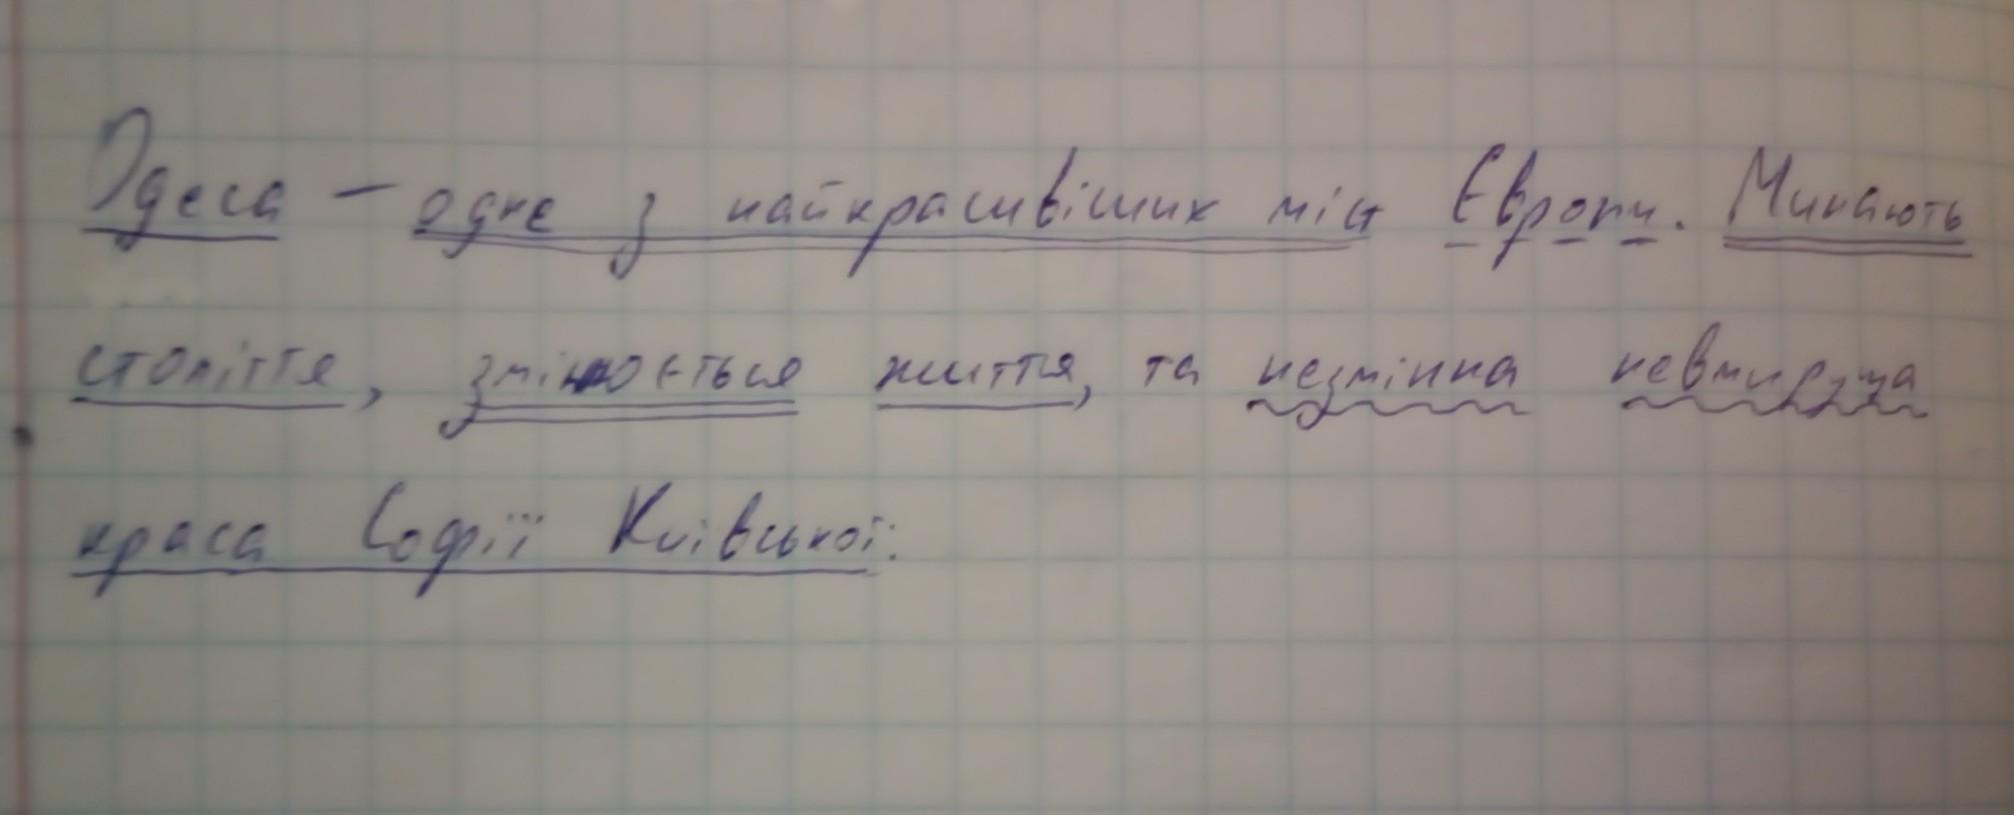 Одеса – одне з найкрасивіших міст Європи. Минають
століття, змінюється життя, та незмінна невмируща
краса Софії Київської.